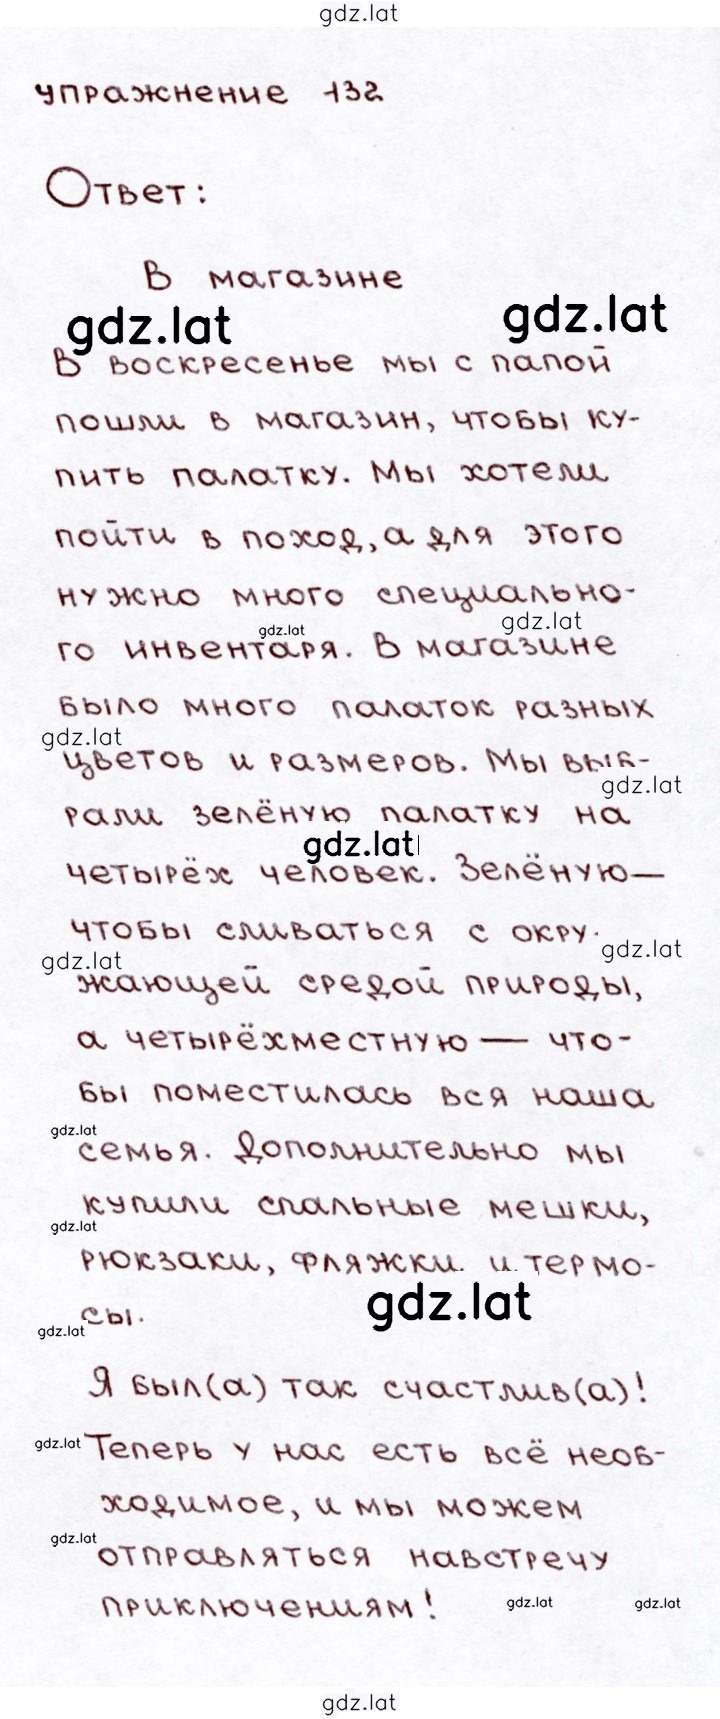 gdz.lat
упражнение 132
Ответ:
В магазине
gdz.lat gdz.lat
В воскресенье мы с папой
пошли в магазин, чтобы ку-
пить палатку. Мы хотели
пойти в поход, а для этого
нужно много специально-
gdz.lat gdz.lat
го инвентаря. В магазине
было много палаток разных
gdz.lat
цветов и размеров. Мы выб-
gdz.lat
рали зелёную палатку на
gdz.lat
четырёх человек. Зелёную—
чтобы сливаться с окру-
gdz.lat gdz.lat
жающей средой природы,
а четырёхместную — что-
бы поместилась вся наша
gdz.lat
семья. Дополнительно мы
купили спальные мешки,
gdz.lat
рюкзаки, фляжки и термо-
gdz.lat
сы.
gdz.lat
Я был(а) так счастлив(а)!
gdz.lat
Теперь у нас есть всё необ-
ходимое, и мы можем
gdz.lat
отправляться навстречу
приключениям!
gdz.lat gdz.lat
gdz.lat